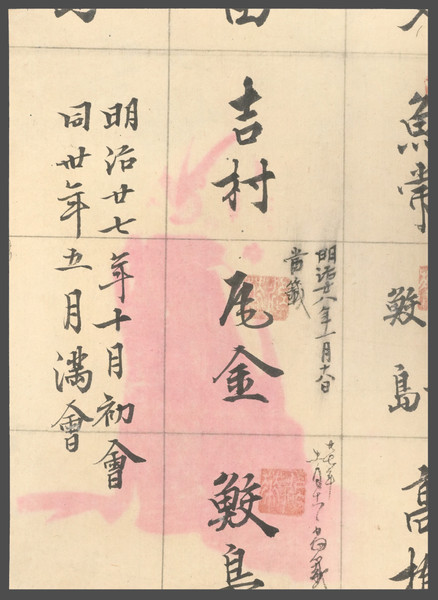 魚常
鮫島
高橋
明治廿八年一月十六日
當籤
吉村
尾金
鮫島
明治廿七年十月初會
同卅年五月滿會